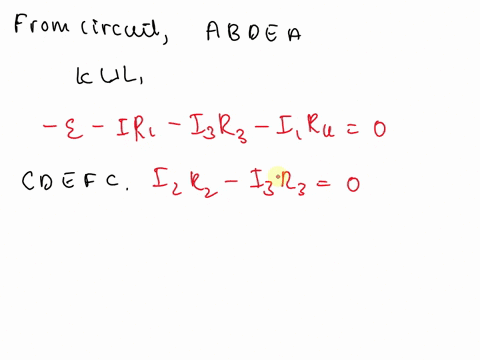 From circuit, ABDEA
KVL,
-ε - IR₁ - I₃R₃ - I₁R₄ = 0
CDEFC. I₂R₂ - I₃R₃ = 0